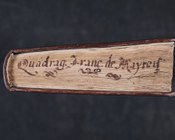 Quadrag. Franc. de Mayroỹ